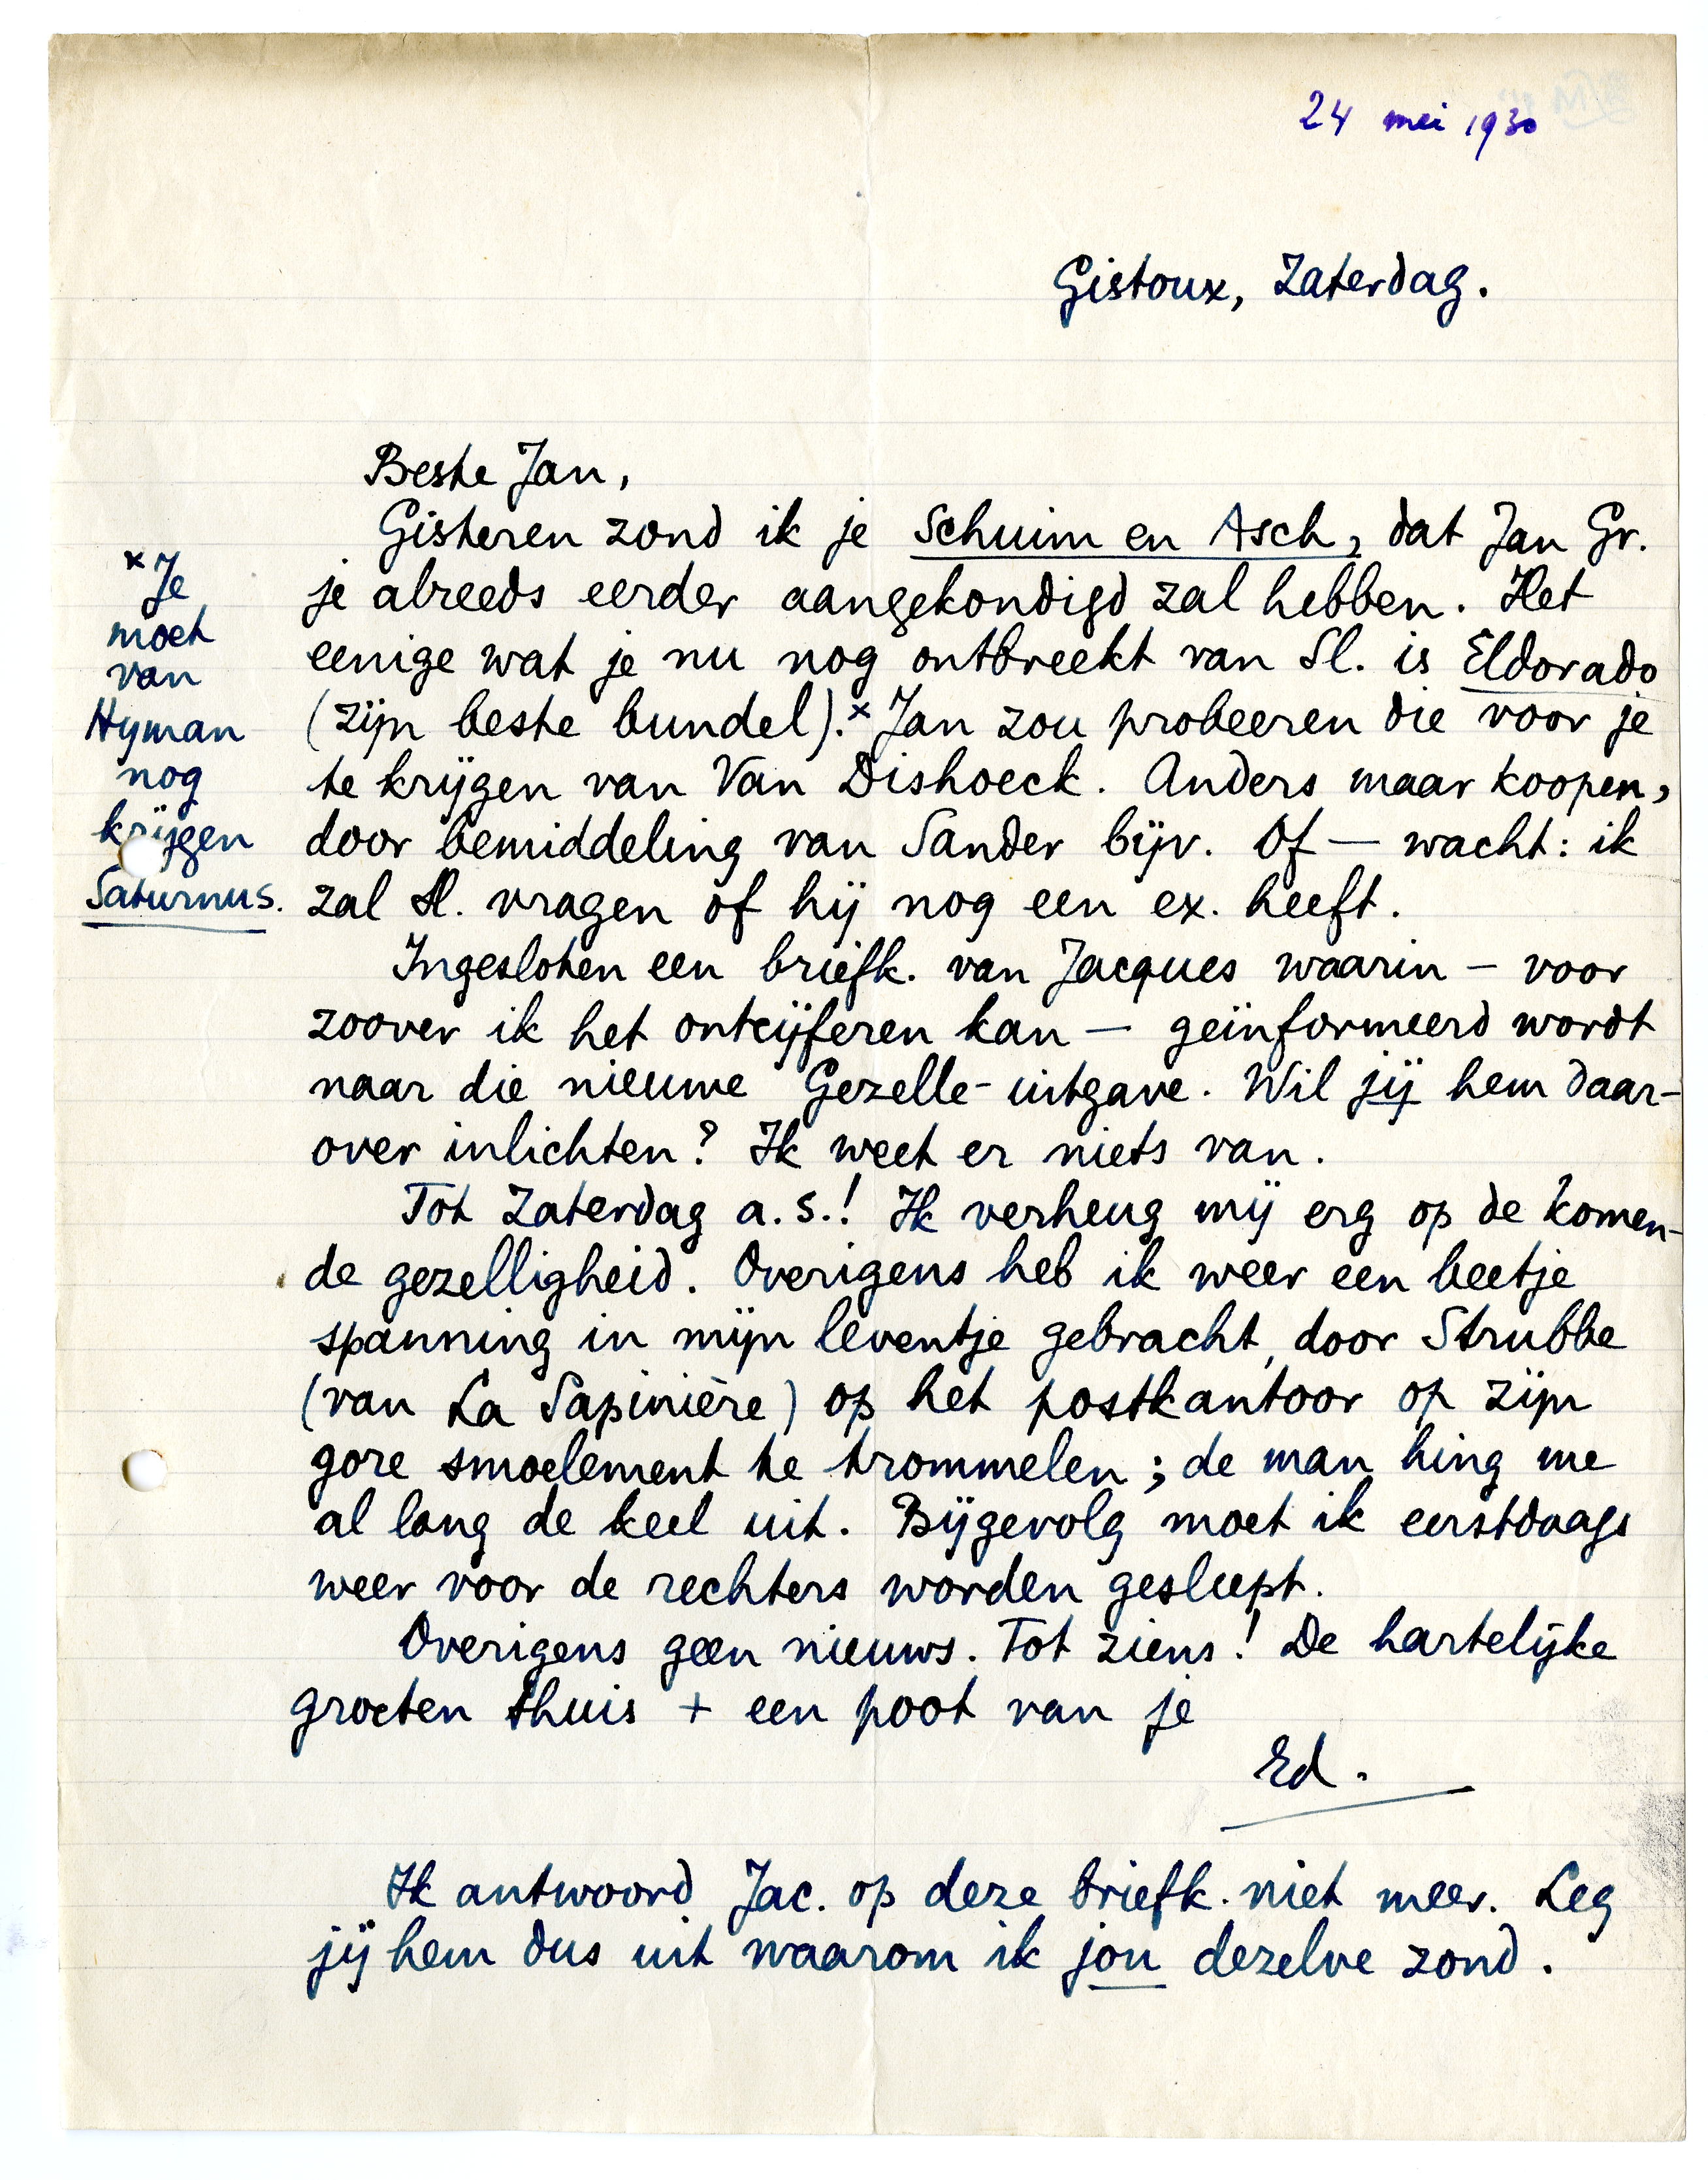 24 mei 1930
Gistoux, Zaterdag.
Beste Jan,
Gisteren zond ik je Schuim en Asch, dat Jan Gr.
je alreeds eerder aangekondigd zal hebben. Het
eenige wat je nu nog ontbreekt van Sl. is Eldorado
(zijn beste bundel).x Jan zou probeeren die voor je
te krijgen van Van Dishoeck. Anders maar koopen,
door bemiddeling van Sander bijv. Of — wacht: ik
zal Sl. vragen of hij nog een ex. heeft.
x Je
moet
van
Hyman
nog
krijgen
Saturnus.
Ingesloten een briefk. van Jacques waarin — voor
zoover ik het ontcijferen kan — geïnformeerd wordt
naar die nieuwe Gezelle-uitgave. Wil jij hem daar-
over inlichten? Ik weet er niets van.
Tot Zaterdag a.s.! Ik verheug mij erg op de komen-
de gezelligheid. Overigens heb ik weer een beetje
spanning in mijn leventje gebracht, door Strubbe
(van La Sapinière) op het postkantoor op zijn
gore smoelement te trommelen; de man hing me
al lang de keel uit. Bijgevolg moet ik eerstdaags
weer voor de rechters worden gesleept.
Overigens geen nieuws. Tot ziens! De hartelijke
groeten thuis + een poot van je
Ed.
Ik antwoord Jac. op deze briefk. niet meer. Leg
jij hem dus uit waarom ik jou dezelve zond.